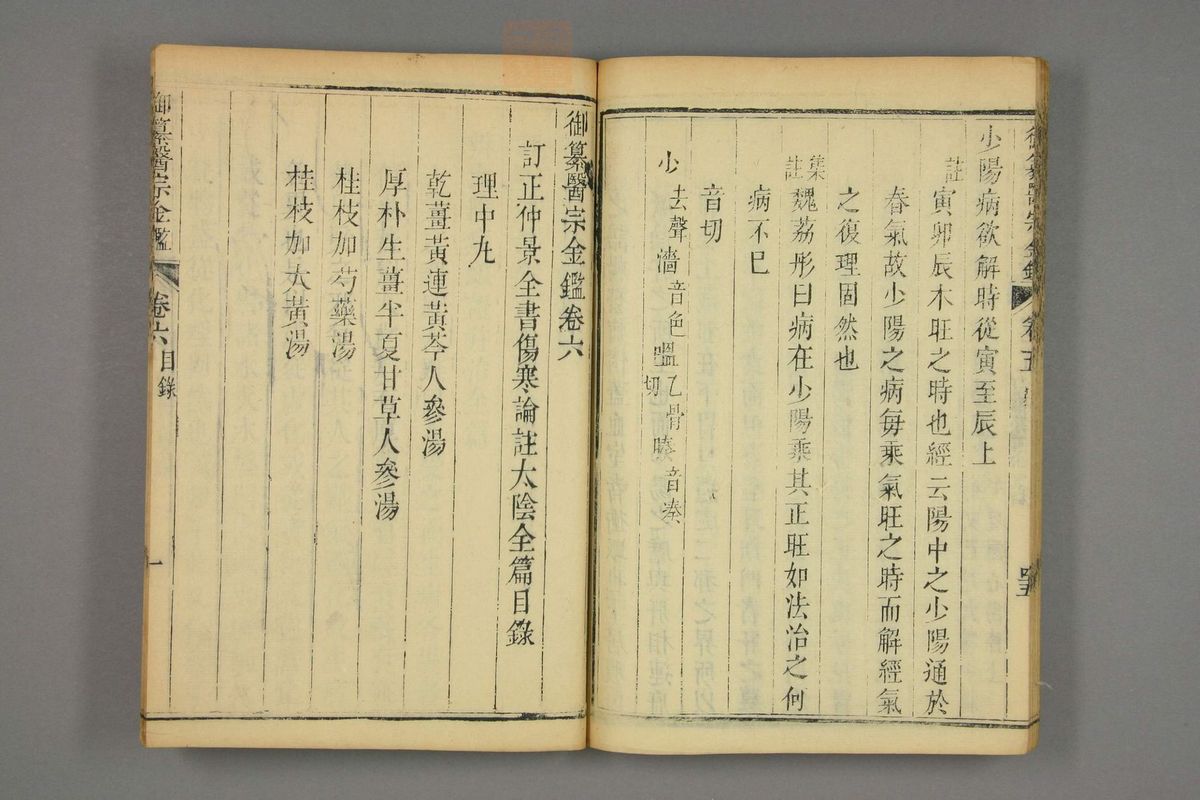 少陽病欲解時從寅至辰上
註寅卯辰木旺之時也經云陽中之少陽通於
春氣故少陽之病每乘氣旺之時而解經氣
之復理固然也
集註魏荔彤曰病在少陽乘其正旺如法治之何
病不已
音切
少去聲 濇音色 嗢乙骨切 腠音湊
御纂醫宗金鑑卷六
訂正仲景全書傷寒論註太陰全篇目錄
理中九
乾薑黃連黃芩人參湯
厚朴生薑半夏甘草人參湯
桂枝加芍藥湯
桂枝加大黃湯
御纂醫宗金鑑 卷六 目錄 一